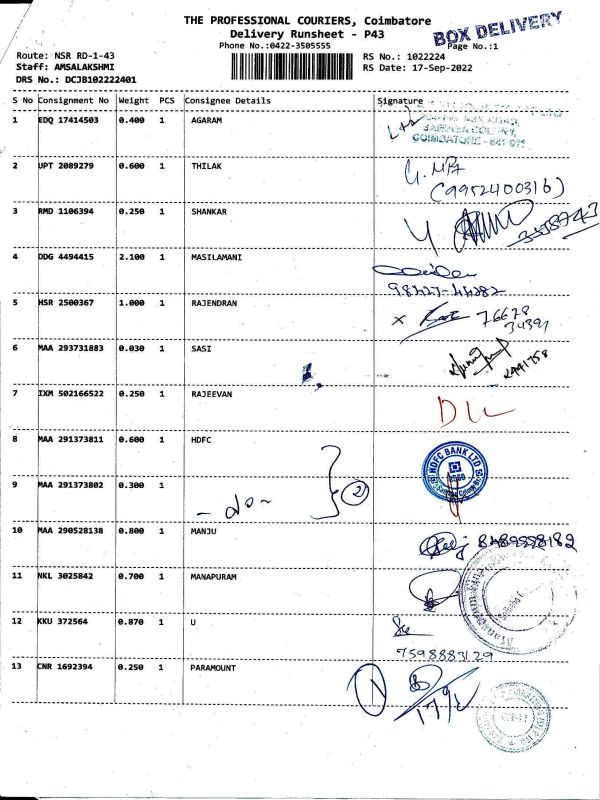 THE PROFESSIONAL COURIERS, Coimbatore
BOX DELIVERY
Delivery Runsheet - P43
Phone No.:0422-3505555
Page No.:1
Route: NSR RD-1-43
RS No.: 1022224
Staff: AMSALAKSHMI
RS Date: 17-Sep-2022
DRS No.: DCJB102222401
S No Consignment No Weight PCS Consignee Details Signature
1 EDQ 17414503 0.400 1 AGARAM
SAIBABA COLONY,
COIMBATORE - 641 011
2 UPT 2089279 0.600 1 THILAK
(9952400316)
3 RMD 1106394 0.250 1 SHANKAR
4 DDG 4494415 2.100 1 MASILAMANI
98427-44282
5 HSR 2500367 1.000 1 RAJENDRAN
x 76678
34391
6 MAA 293731883 0.030 1 SASI
7 IXM 502166522 0.250 1 RAJEEVAN
8 MAA 291373811 0.600 1 HDFC
HDFC BANK LTD
9 MAA 291373802 0.300 1
- do - 2
10 MAA 290528138 0.800 1 MANJU
11 NKL 3025842 0.700 1 MANAPURAM
12 KKU 372564 0.870 1 U
7598883129
13 CNR 1692394 0.250 1 PARAMOUNT
1
17/9